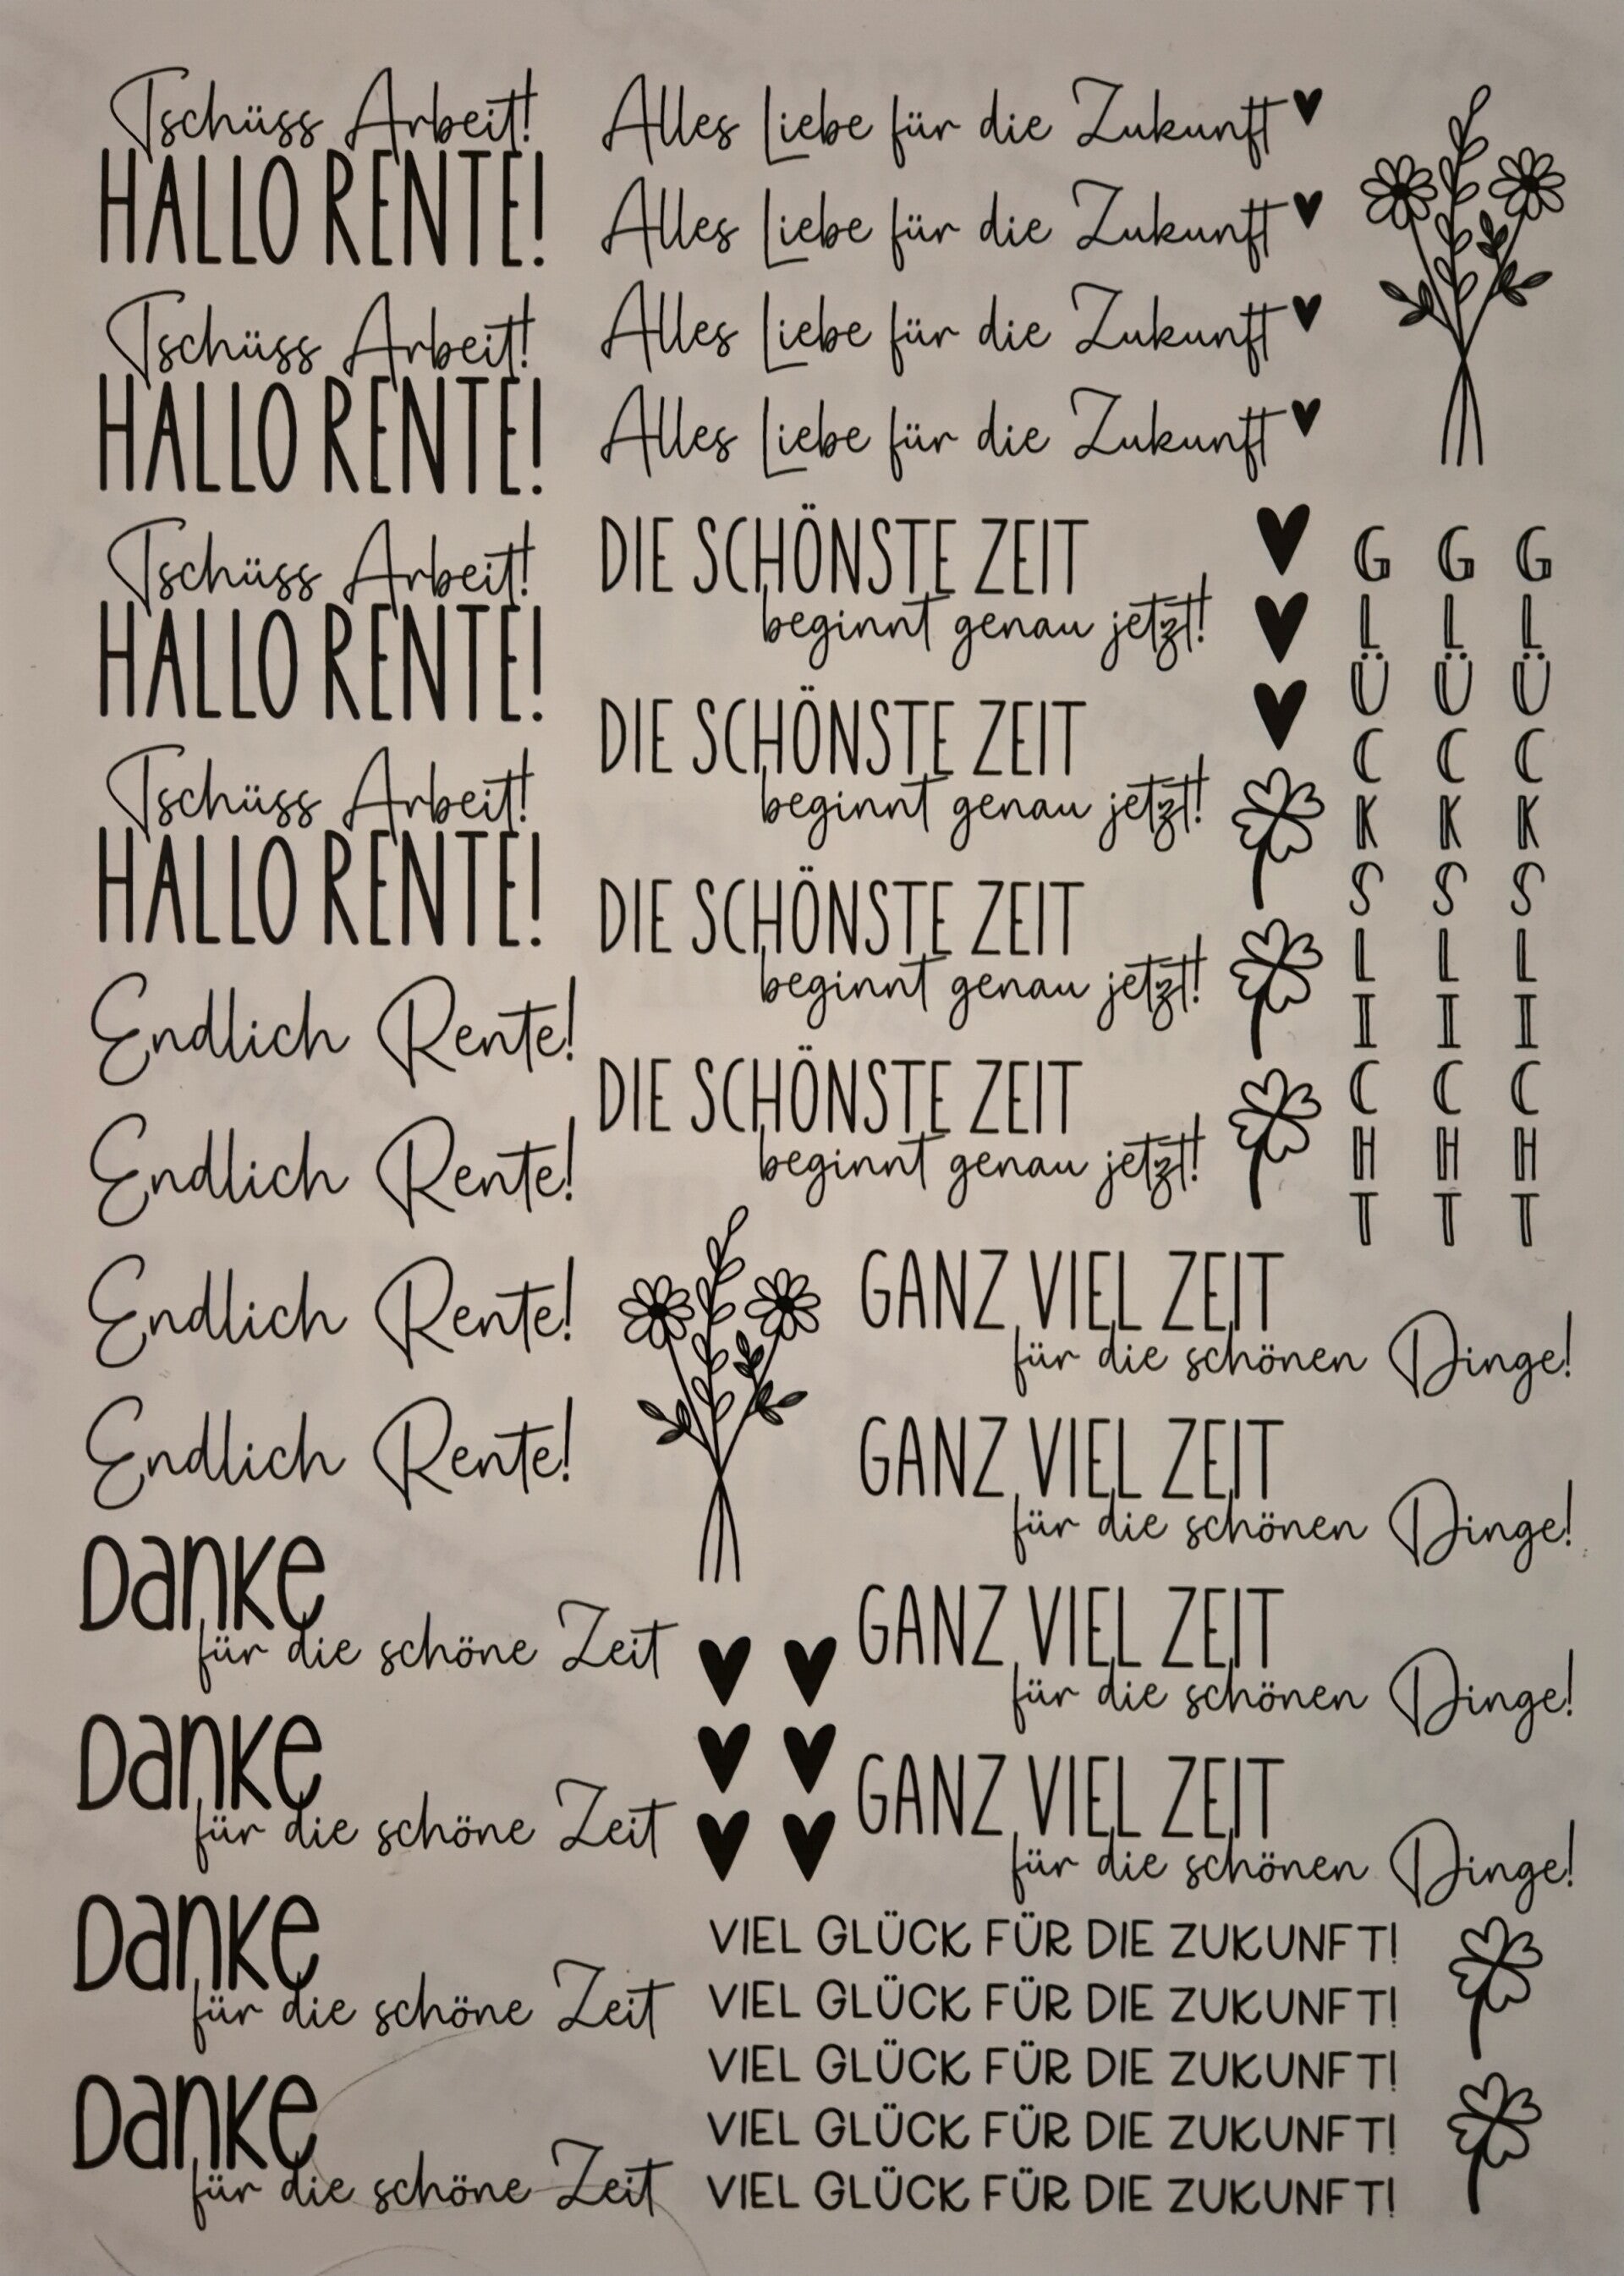 Tschüss Arbeit!
HALLO RENTE!
Tschüss Arbeit!
HALLO RENTE!
Tschüss Arbeit!
HALLO RENTE!
Tschüss Arbeit!
HALLO RENTE!
Endlich Rente!
Endlich Rente!
Endlich Rente!
Endlich Rente!
Danke
für die schöne Zeit
Danke
für die schöne Zeit
Danke
für die schöne Zeit
Danke
für die schöne Zeit
Alles Liebe für die Zukunft
Alles Liebe für die Zukunft
Alles Liebe für die Zukunft
Alles Liebe für die Zukunft
DIE SCHÖNSTE ZEIT
beginnt genau jetzt!
DIE SCHÖNSTE ZEIT
beginnt genau jetzt!
DIE SCHÖNSTE ZEIT
beginnt genau jetzt!
DIE SCHÖNSTE ZEIT
beginnt genau jetzt!
GLÜCKSLICHT
GLÜCKSLICHT
GLÜCKSLICHT
GANZ VIEL ZEIT
für die schönen Dinge!
GANZ VIEL ZEIT
für die schönen Dinge!
GANZ VIEL ZEIT
für die schönen Dinge!
GANZ VIEL ZEIT
für die schönen Dinge!
VIEL GLÜCK FÜR DIE ZUKUNFT!
VIEL GLÜCK FÜR DIE ZUKUNFT!
VIEL GLÜCK FÜR DIE ZUKUNFT!
VIEL GLÜCK FÜR DIE ZUKUNFT!
VIEL GLÜCK FÜR DIE ZUKUNFT!